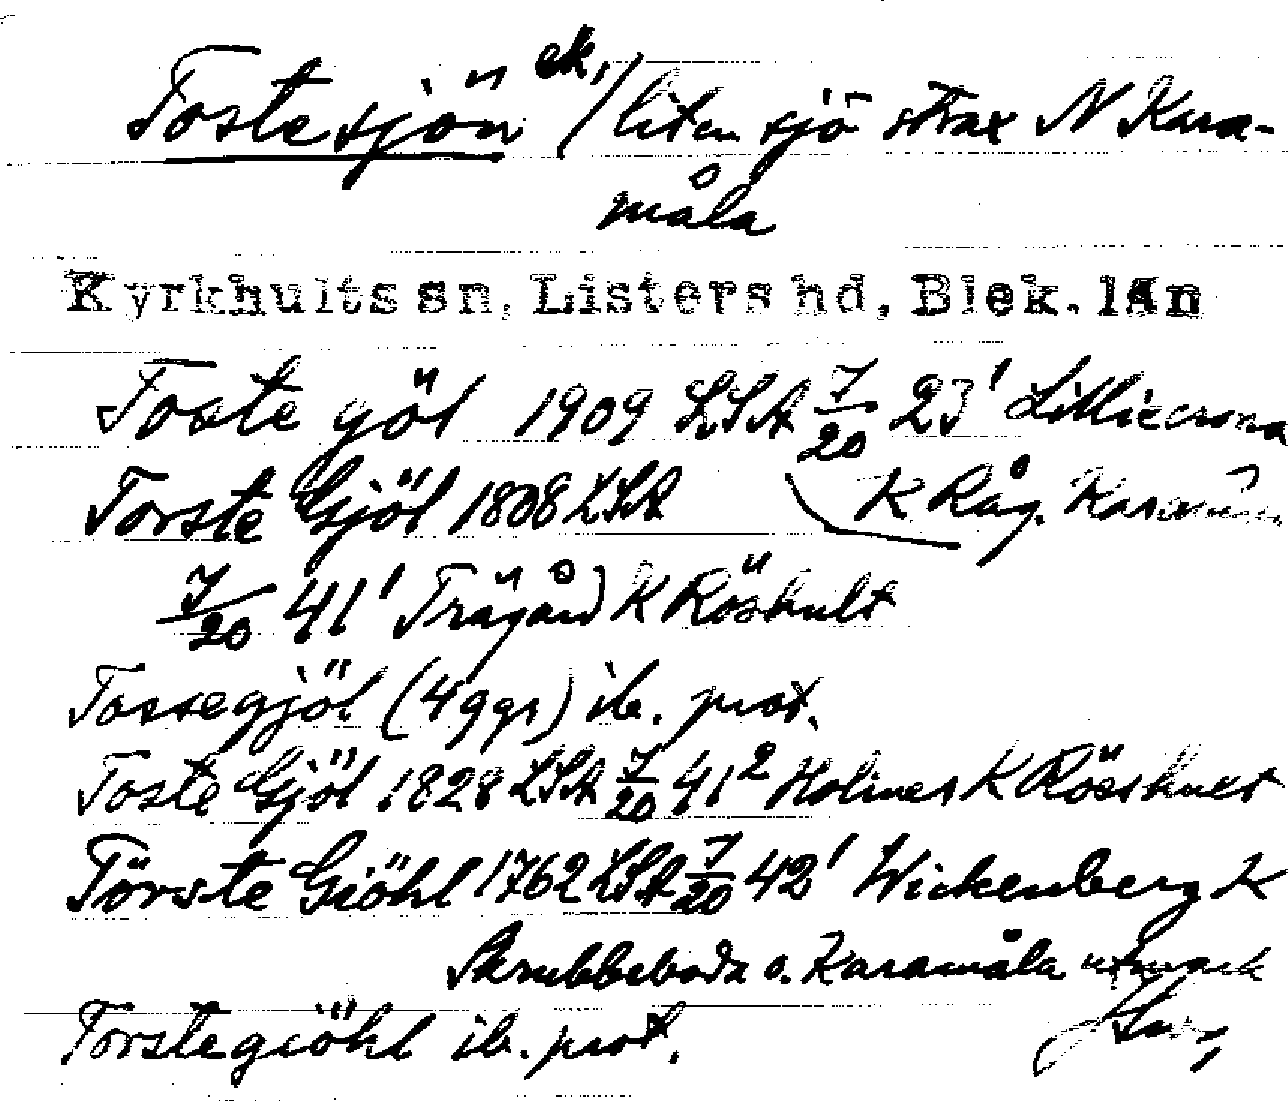 Tostesjön ek, / liten sjö strax N Kara-
måla
Kyrkhults sn, Listers hd, Blek. län
Toste göl 1909 LSA 7/20 23¹ Lilliecrona
K Råg. Karamåla
Torste Gjöl 1808 LSA
7/20 41¹ Trägård K Röshult
Tossegjöl (4 ggr) ib. prot.
Toste Gjöl 1828 LSA 7/20 41² Holmer K Röeshult
Törste Giöhl 1762 LSA 7/20 42¹ Wickenberg K
Skrubbeboda o. Karamåla utmark
Torstegiöhl ib. prot.